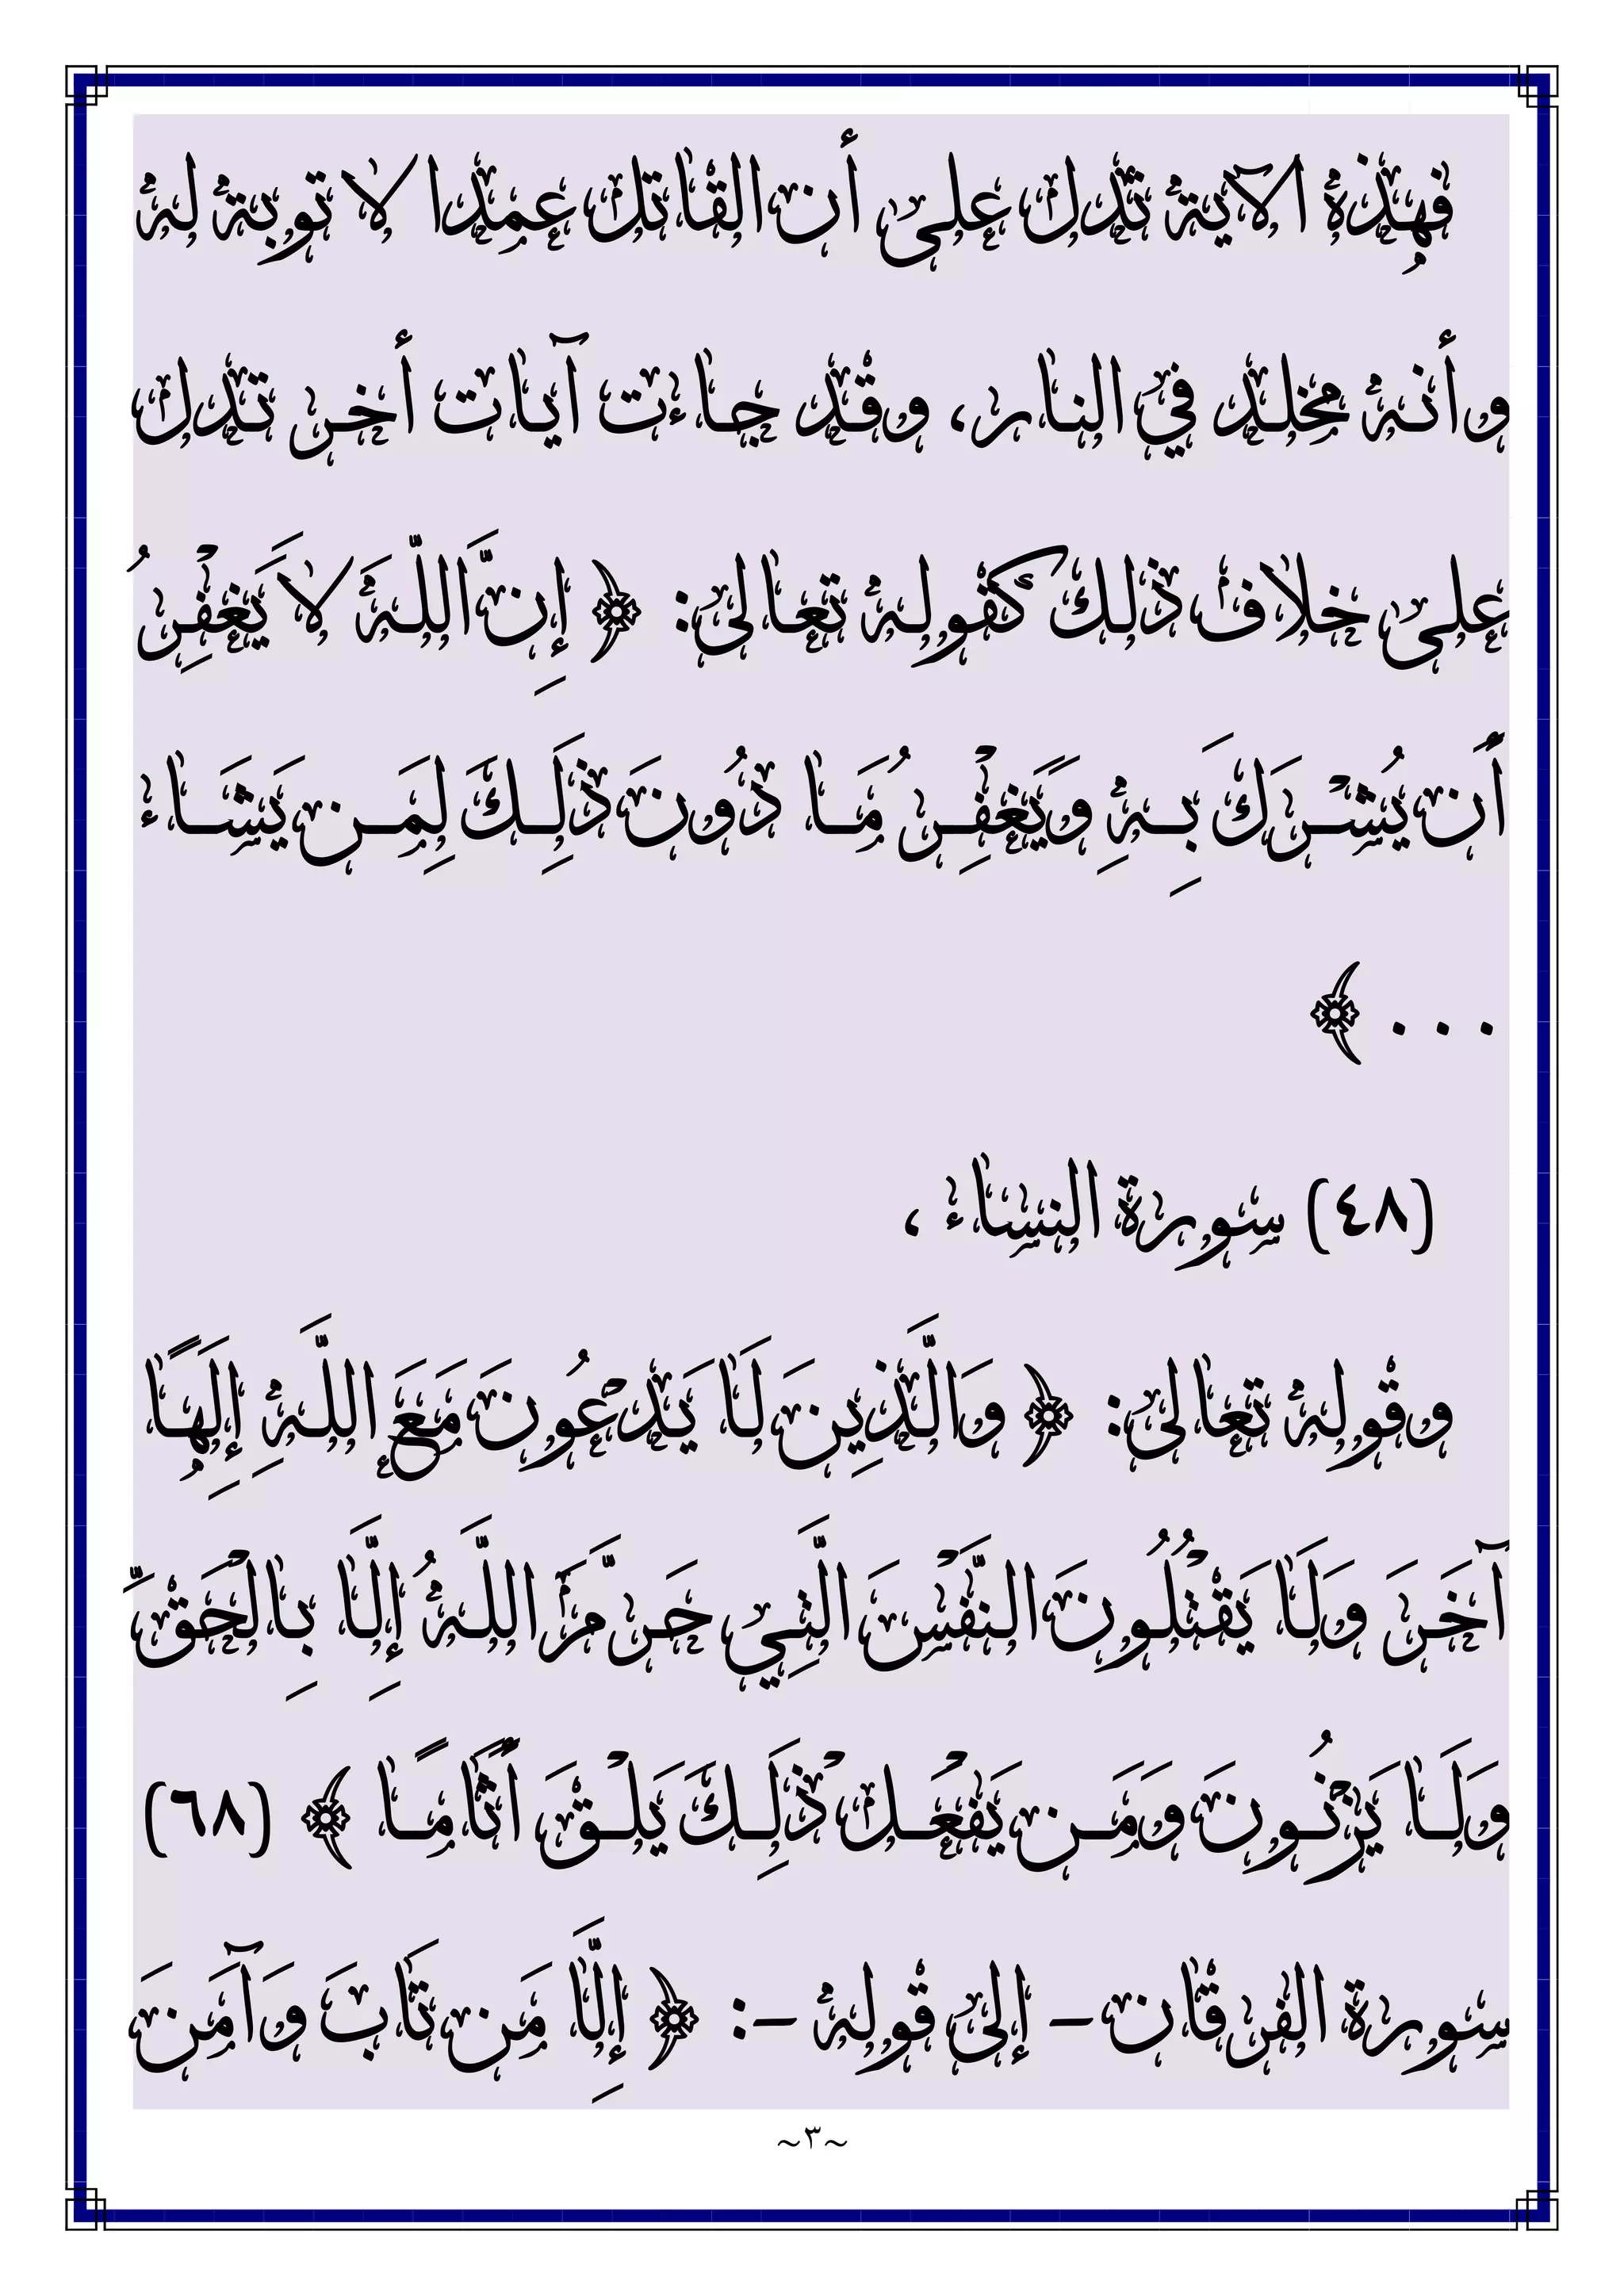 فهذه الآية تدل على أن القاتل عمدا لا توبة له
وأنه مخلد في النار، وقد جاءت آيات أخر تدل
على خلاف ذلك كقوله تعالى: ﴿ إِنَّ اللَّهَ لاَ يَغْفِرُ
أَن يُشْرَكَ بِهِ وَيَغْفِرُ مَا دُونَ ذَلِكَ لِمَن يَشَاء
... ﴾
(٤٨) سورة النساء ،
وقوله تعالى: ﴿ وَالَّذِينَ لَا يَدْعُونَ مَعَ اللَّهِ إِلَهًا
آخَرَ وَلَا يَقْتُلُونَ النَّفْسَ الَّتِي حَرَّمَ اللَّهُ إِلَّا بِالْحَقِّ
وَلَا يَزْنُونَ وَمَن يَفْعَلْ ذَلِكَ يَلْقَ أَثَامًا ﴾ (٦٨)
سورة الفرقان - إلى قوله -: ﴿ إِلَّا مَن تَابَ وَآمَنَ
~٣~